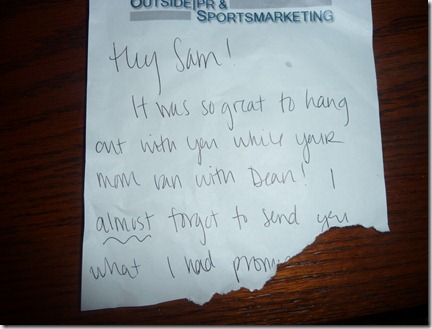 OUTSIDE|PR &
SPORTSMARKETING
Hey Sam!
It was so great to hang
out with you while your
mom ran with Dean! I
almost forgot to send you
what I had